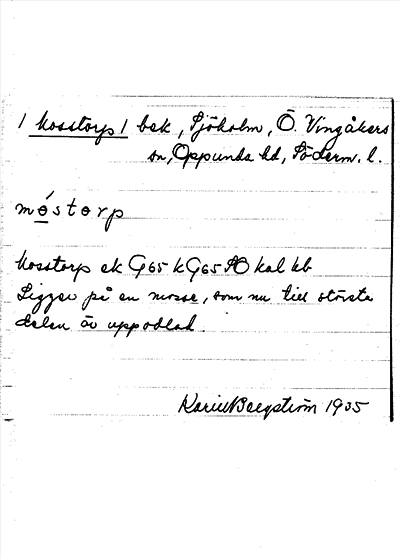 / Mosstorp / bek, Sjöholm, Ö. Vingåkers
sn, Oppunda hd, Söderm. l.
móstorp
Mosstorp ek G65 k G65 SO kal kb
Ligger på en mosse, som nu till största
delen är uppodlad.
Karin Bergström 1935